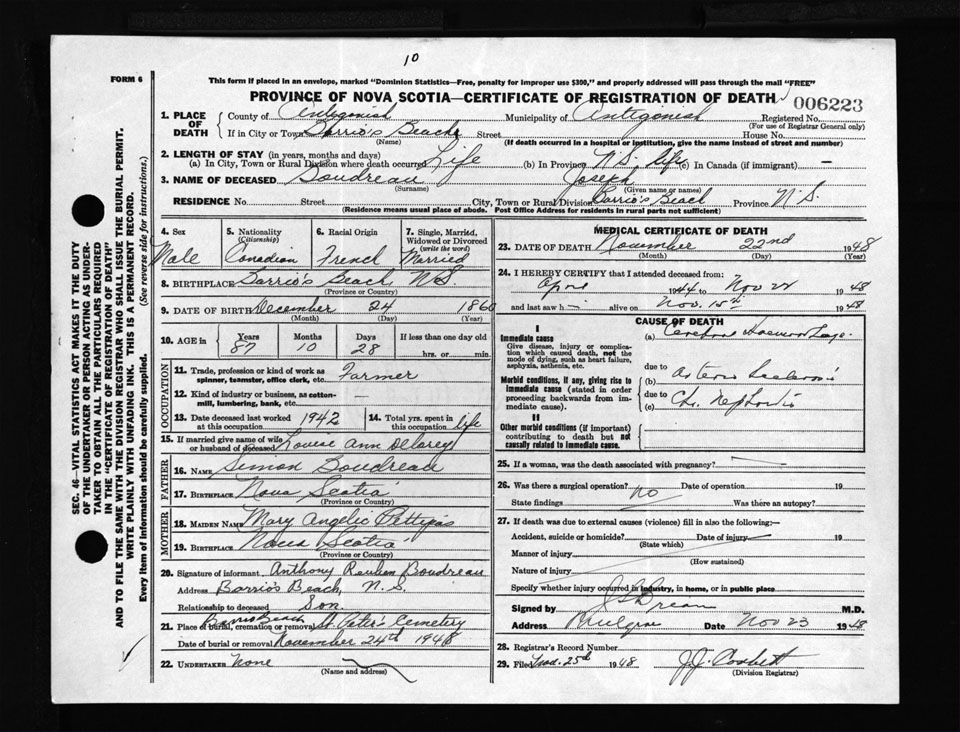 10
FORM 6
This form if placed in an envelope, marked "Dominion Statistics—Free, penalty for improper use $300," and properly addressed will pass through the mail "FREE"
PROVINCE OF NOVA SCOTIA—CERTIFICATE OF REGISTRATION OF DEATH
006223
SEC. 46—VITAL STATISTICS ACT MAKES IT THE DUTY
OF THE UNDERTAKER OR PERSON ACTING AS UNDER-
TAKER TO OBTAIN ALL THE PARTICULARS REQUIRED
IN THE "CERTIFICATE OF REGISTRATION OF DEATH"
AND TO FILE THE SAME WITH THE DIVISION REGISTRAR WHO SHALL ISSUE THE BURIAL PERMIT.
WRITE PLAINLY WITH UNFADING INK. THIS IS A PERMANENT RECORD.
Every item of information should be carefully supplied. (See reverse side for instructions.)
1. PLACE OF DEATH
County of Antigonish Municipality of Antigonish Registered No.
(For use of Registrar General only)
If in City or Town Barrio's Beach Street House No.
(Name) (If death occurred in a hospital or institution, give the name instead of street and number)
2. LENGTH OF STAY (in years, months and days)
(a) In City, Town or Rural Division where death occurred Life (b) In Province N.S. life (c) In Canada (if immigrant) —
3. NAME OF DECEASED Boudreau Joseph
(Surname) (Given name or names)
RESIDENCE No. Street City, Town or Rural Division Barrio's Beach Province N.S.
(Residence means usual place of abode. Post Office Address for residents in rural parts not sufficient)
4. Sex Male
5. Nationality (Citizenship) Canadian
6. Racial Origin French
7. Single, Married, Widowed or Divorced (write the word) Married
8. BIRTHPLACE Barrio's Beach, N.S.
(Province or Country)
9. DATE OF BIRTH December 24 1860
(Month) (Day) (Year)
10. AGE in Years Months Days If less than one day old
87 10 28 hrs. or min.
OCCUPATION
11. Trade, profession or kind of work as spinner, teamster, office clerk, etc. Farmer
12. Kind of industry or business, as cotton-mill, lumbering, bank, etc. —
13. Date deceased last worked at this occupation 1942
14. Total yrs. spent in this occupation life
15. If married give name of wife or husband of deceased Louise Ann Delorey
FATHER
16. NAME Simon Boudreau
17. BIRTHPLACE Nova Scotia
(Province or Country)
MOTHER
18. MAIDEN NAME Mary Angelic Pettipas
19. BIRTHPLACE Nova Scotia
(Province or Country)
20. Signature of informant Anthony Reuben Boudreau
Address Barrio's Beach, N.S.
Relationship to deceased Son.
21. Place of burial, cremation or removal Barrio Beach St. Peter's Cemetery
Date of burial or removal November 24th 1948
22. UNDERTAKER None
(Name and address)
MEDICAL CERTIFICATE OF DEATH
23. DATE OF DEATH November 22nd 1948
(Month) (Day) (Year)
24. I HEREBY CERTIFY that I attended deceased from:
April 1944 to Nov 22 1948
and last saw h alive on Nov. 15th 1948
CAUSE OF DEATH
I
Immediate cause
Give disease, injury or complication which caused death, not the mode of dying, such as heart failure, asphyxia, asthenia, etc.
(a) Cerebral Haemorrhage
due to
Morbid conditions, if any, giving rise to immediate cause (stated in order proceeding backwards from immediate cause).
(b) Arterio Sclerosis
due to
(c) Ch. Nephritis
II
Other morbid conditions (if important) contributing to death but not causally related to immediate cause.
25. If a woman, was the death associated with pregnancy?
26. Was there a surgical operation? no Date of operation 19
State findings Was there an autopsy?
27. If death was due to external causes (violence) fill in also the following:—
Accident, suicide or homicide? Date of injury 19
(State which)
Manner of injury
(How sustained)
Nature of injury
Specify whether injury occurred in industry, in home, or in public place
Signed by M.D.
Address Mulgrave Date Nov 23 1948
28. Registrar's Record Number
29. Filed Nov. 25th 1948 J.J. Corbett
(Division Registrar)